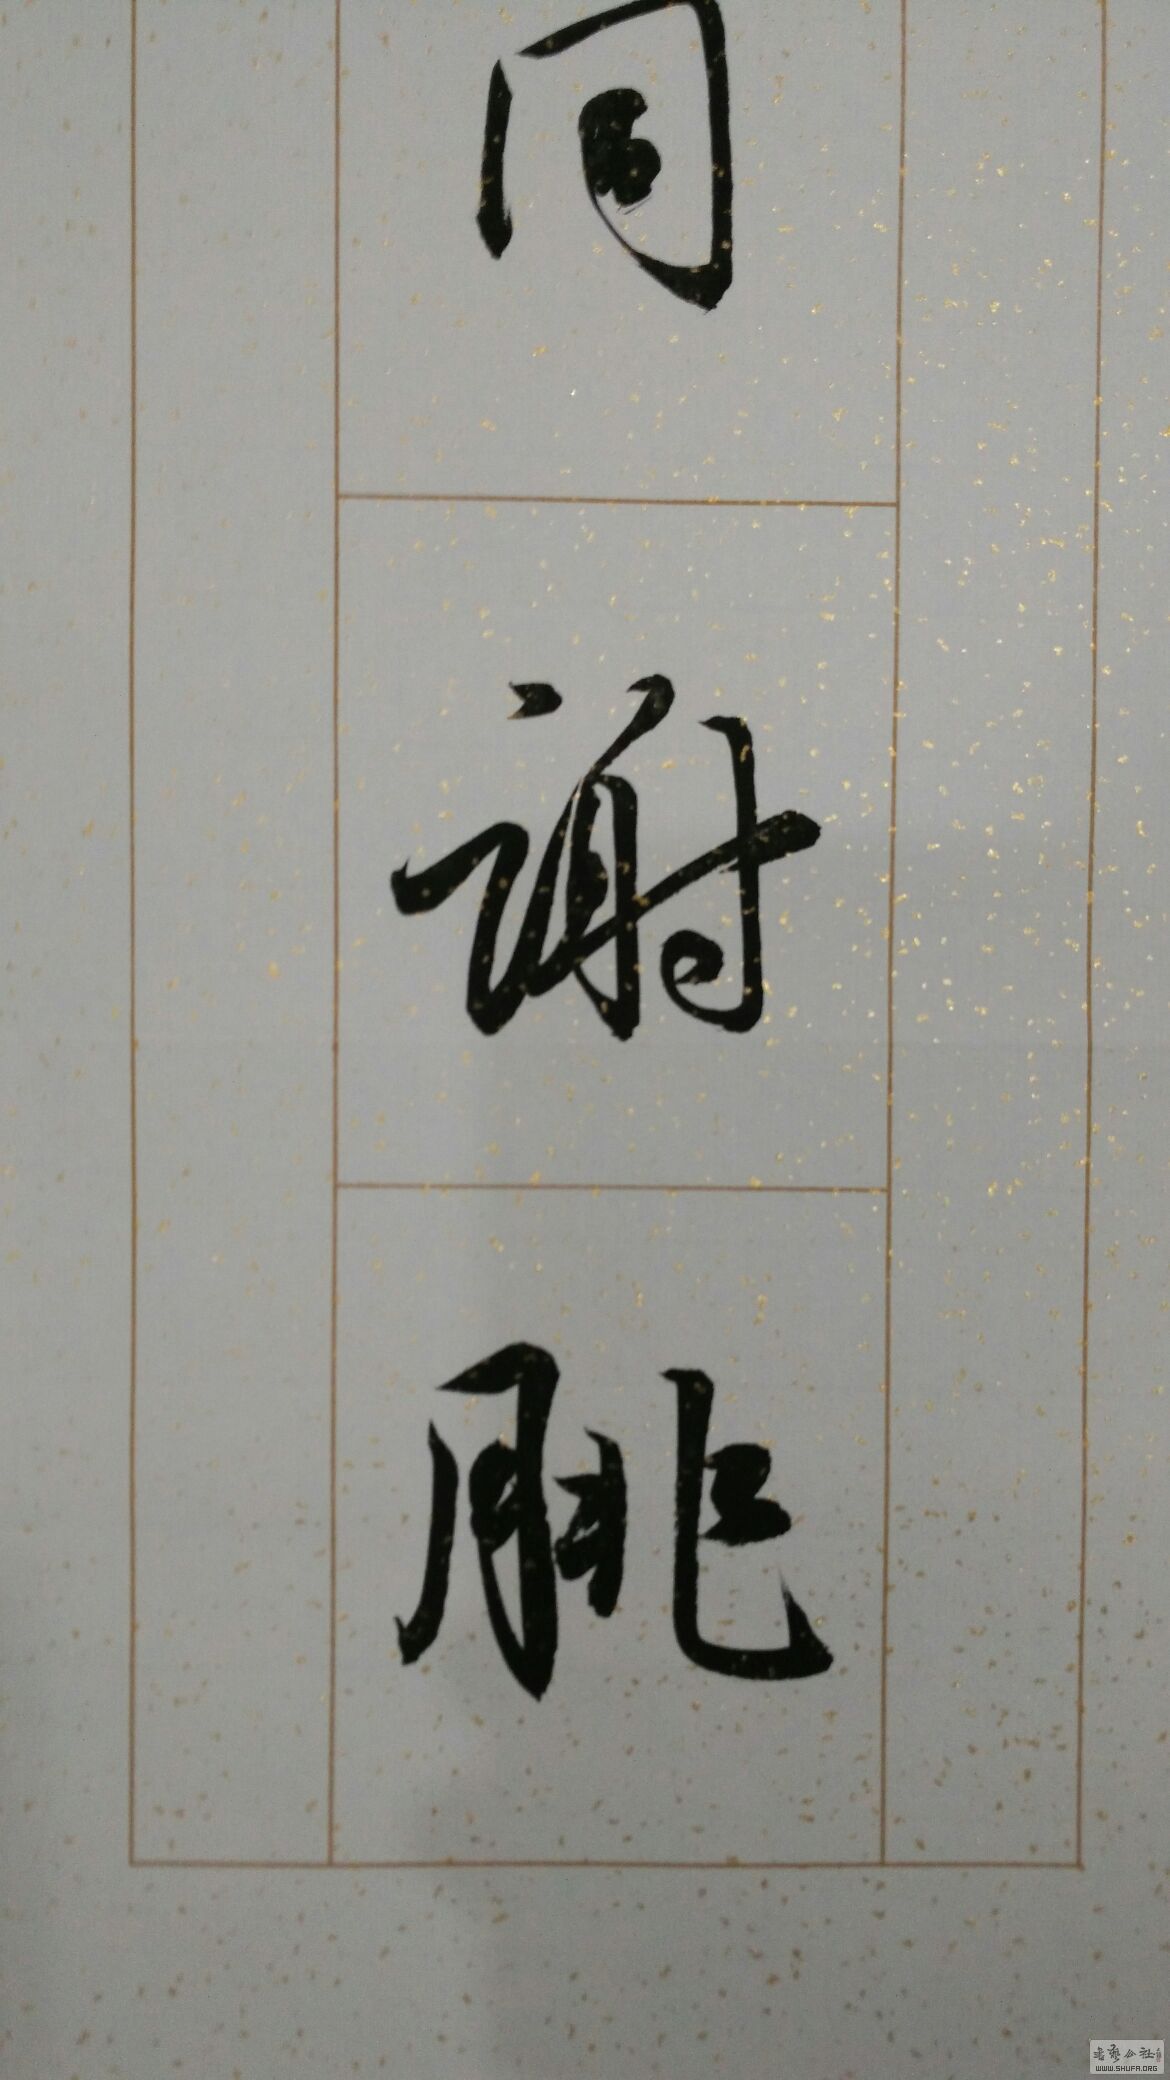 同
谢
朓
书艺公社
WWW.SHUFA.ORG